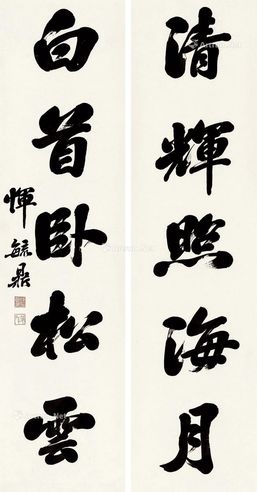 清輝照海月
白首臥松雲
惲毓鼎